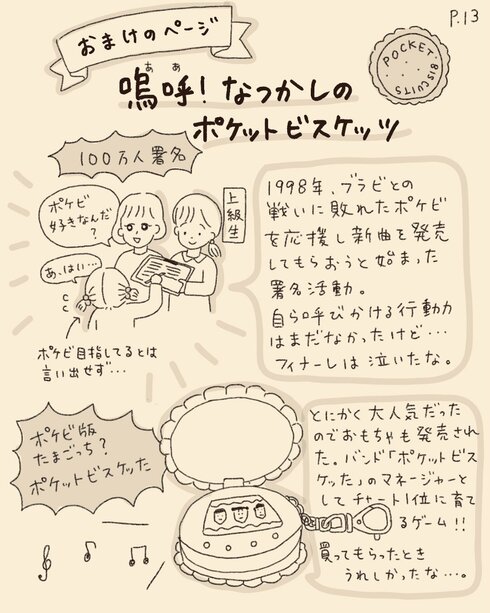 P.13
おまけのページ
POCKET BISCUITS
嗚呼！なつかしの
ああ
ポケットビスケッツ
100万人署名
ポケビ
好きなんだ
？
上級生
あ、はい…
ポケビ目指してるとは
言い出せず…
1998年、ブラビとの
戦いに敗れたポケビ
を応援し新曲を発売
してもらおうと始まった
署名活動。
自ら呼びかける行動力
はまだなかったけど…
フィナーレは泣いたな。
ポケビ版
たまごっち？
ポケットビスケった
とにかく大人気だった
のでおもちゃも発売され
た。バンド「ポケットビス
ケッた」のマネージャーと
してチャート1位に育て
るゲーム！！
買ってもらったとき
うれしかったな…。